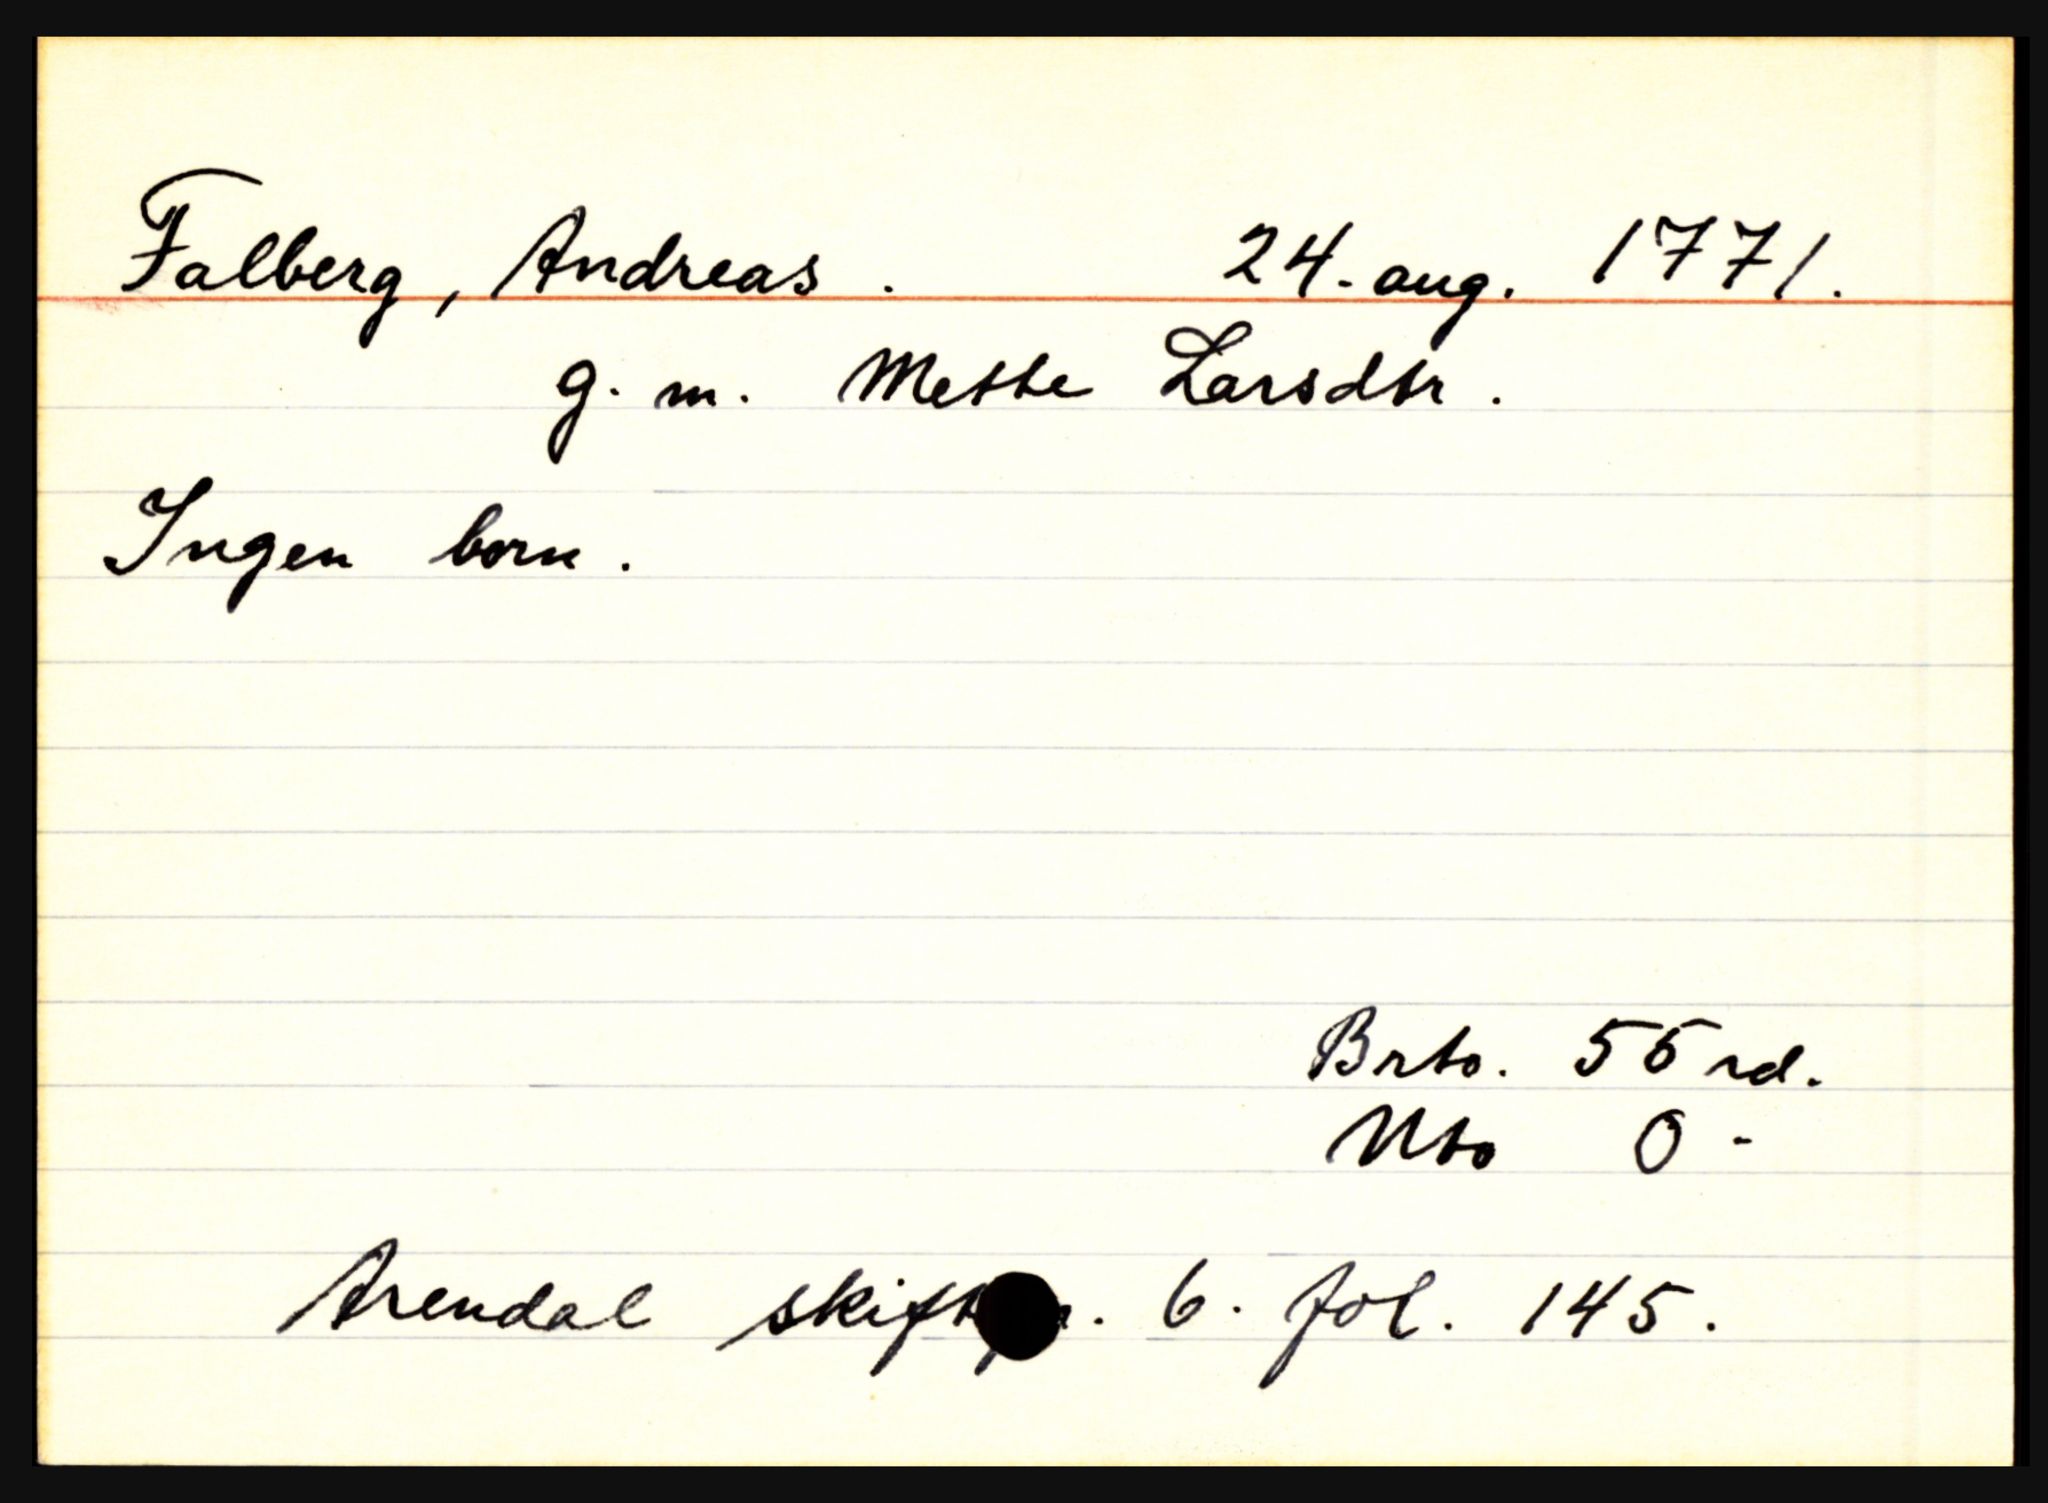 Falberg, Andreas. 24. aug. 1771.
g. m. Mette Larsdtr.
Ingen born.
Brto. 55 rd.
Nto 0 -
Arendal 6. fol. 145.